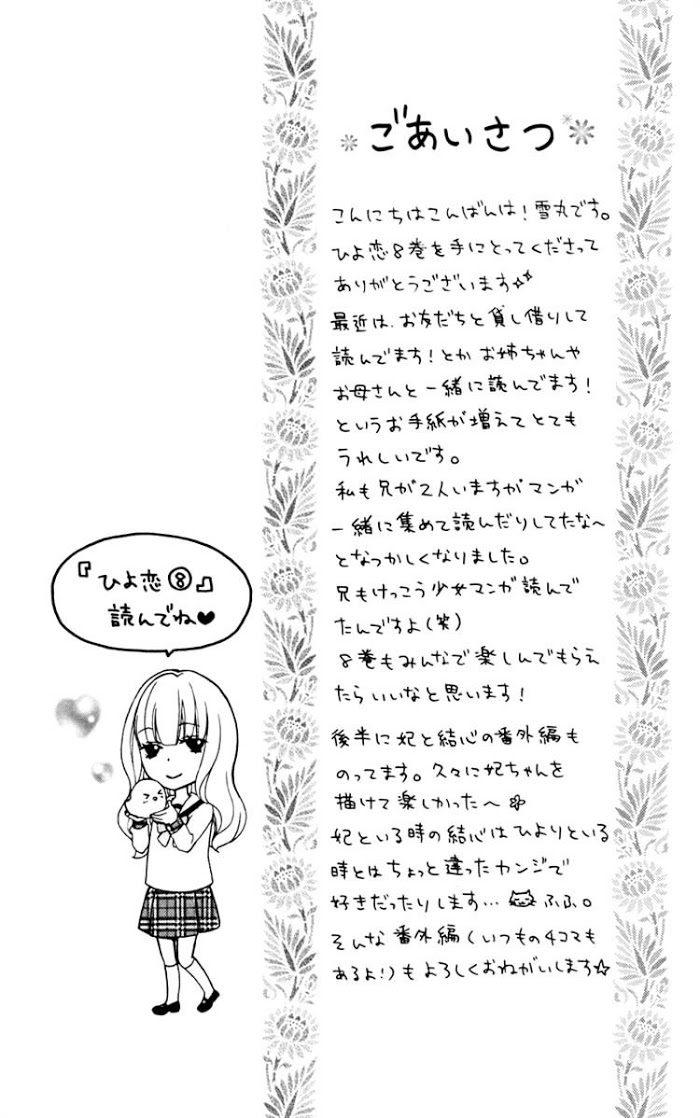 ごあいさつ
こんにちはこんばんは！雪丸です。
ひよ恋8巻を手にとってくださって
ありがとうございます☆
最近は、お友だちと貸し借りして
読んでます！とか お姉ちゃんや
お母さんと一緒に読んでます！
というお手紙が増えてとても
うれしいです。
私も兄が2人いますがマンガ
一緒に集めて読んだりしてたな〜
となつかしくなりました。
兄もけっこう少女マンガ読んで
たんですよ(笑)
8巻もみんなで楽しんでもらえ
たらいいなと思います！
後半に妃と結心の番外編も
のってます。久々に妃ちゃんを
描けて楽しかった〜
妃といる時の結心はひよりといる
時とはちょっと違ったカンジで
好きだったりします… ふふ。
そんな番外編(いつもの4コマも
あるよ！)もよろしくおねがいします☆
『ひよ恋⑧』
読んでね♥